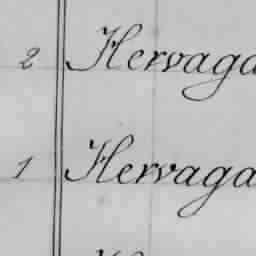 2 Hervaga
1 Hervaga